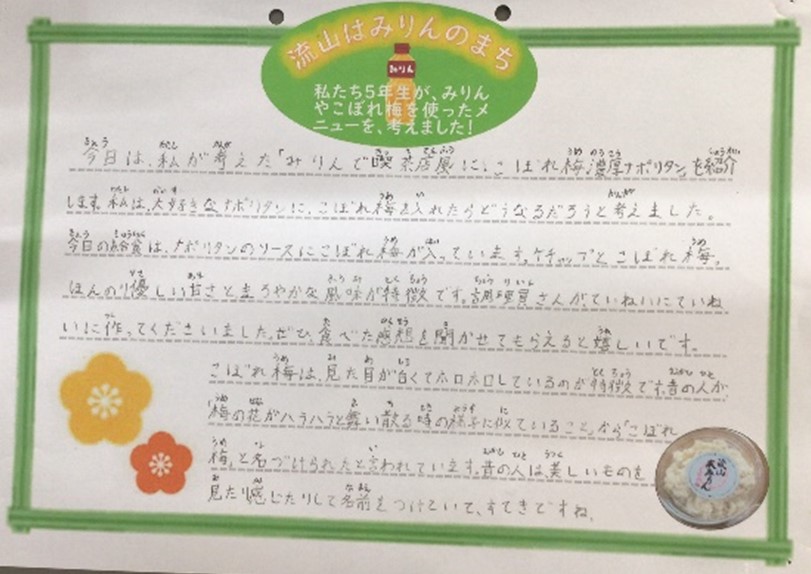 流山はみりんのまち
みりん
私たち5年生が、みりん
やこぼれ梅を使ったメ
ニューを、考えました!
今日は、私が考えた「みりんで喫茶店風に、こぼれ梅濃厚ナポリタン」を紹介
します。私は、大好きなナポリタンに、こぼれ梅を入れたらどうなるだろうと考えました。
今日の給食は、ナポリタンのソースにこぼれ梅が入っています。ケチャップとこぼれ梅、
ほんのり優しい甘さとまろやかな風味が特徴です。調理員さんがていねいにていね
いに作ってくださいました。ぜひ、食べた感想を聞かせてもらえると嬉しいです。
こぼれ梅は、見た目が白くてホロホロしているのが特徴です。昔の人が
梅の花がハラハラと舞い散る時の様子に似ていること、から「こぼれ
梅」と名づけられたと言われています。昔の人は、美しいものを
見たり感じたりして名前をつけていて、すてきですね。
流山